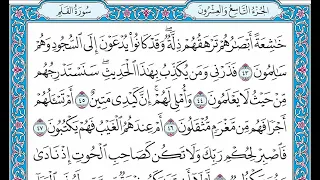 الجزء التاسع والعشرون
سورة القلم
خَٰشِعَةً أَبْصَٰرُهُمْ تَرْهَقُهُمْ ذِلَّةٌ ۖ وَقَدْ كَانُوا۟ يُدْعَوْنَ إِلَى ٱلسُّجُودِ وَهُمْ
سَٰلِمُونَ ٤٣ فَذَرْنِى وَمَن يُكَذِّبُ بِهَٰذَا ٱلْحَدِيثِ ۖ سَنَسْتَدْرِجُهُم
مِّنْ حَيْثُ لَا يَعْلَمُونَ ٤٤ وَأُمْلِى لَهُمْ ۚ إِنَّ كَيْدِى مَتِينٌ ٤٥ أَمْ تَسْـَٔلُهُمْ
أَجْرًا فَهُم مِّن مَّغْرَمٍ مُّثْقَلُونَ ٤٦ أَمْ عِندَهُمُ ٱلْغَيْبُ فَهُمْ يَكْتُبُونَ ٤٧
فَٱصْبِرْ لِحُكْمِ رَبِّكَ وَلَا تَكُن كَصَاحِبِ ٱلْحُوتِ إِذْ نَادَىٰ